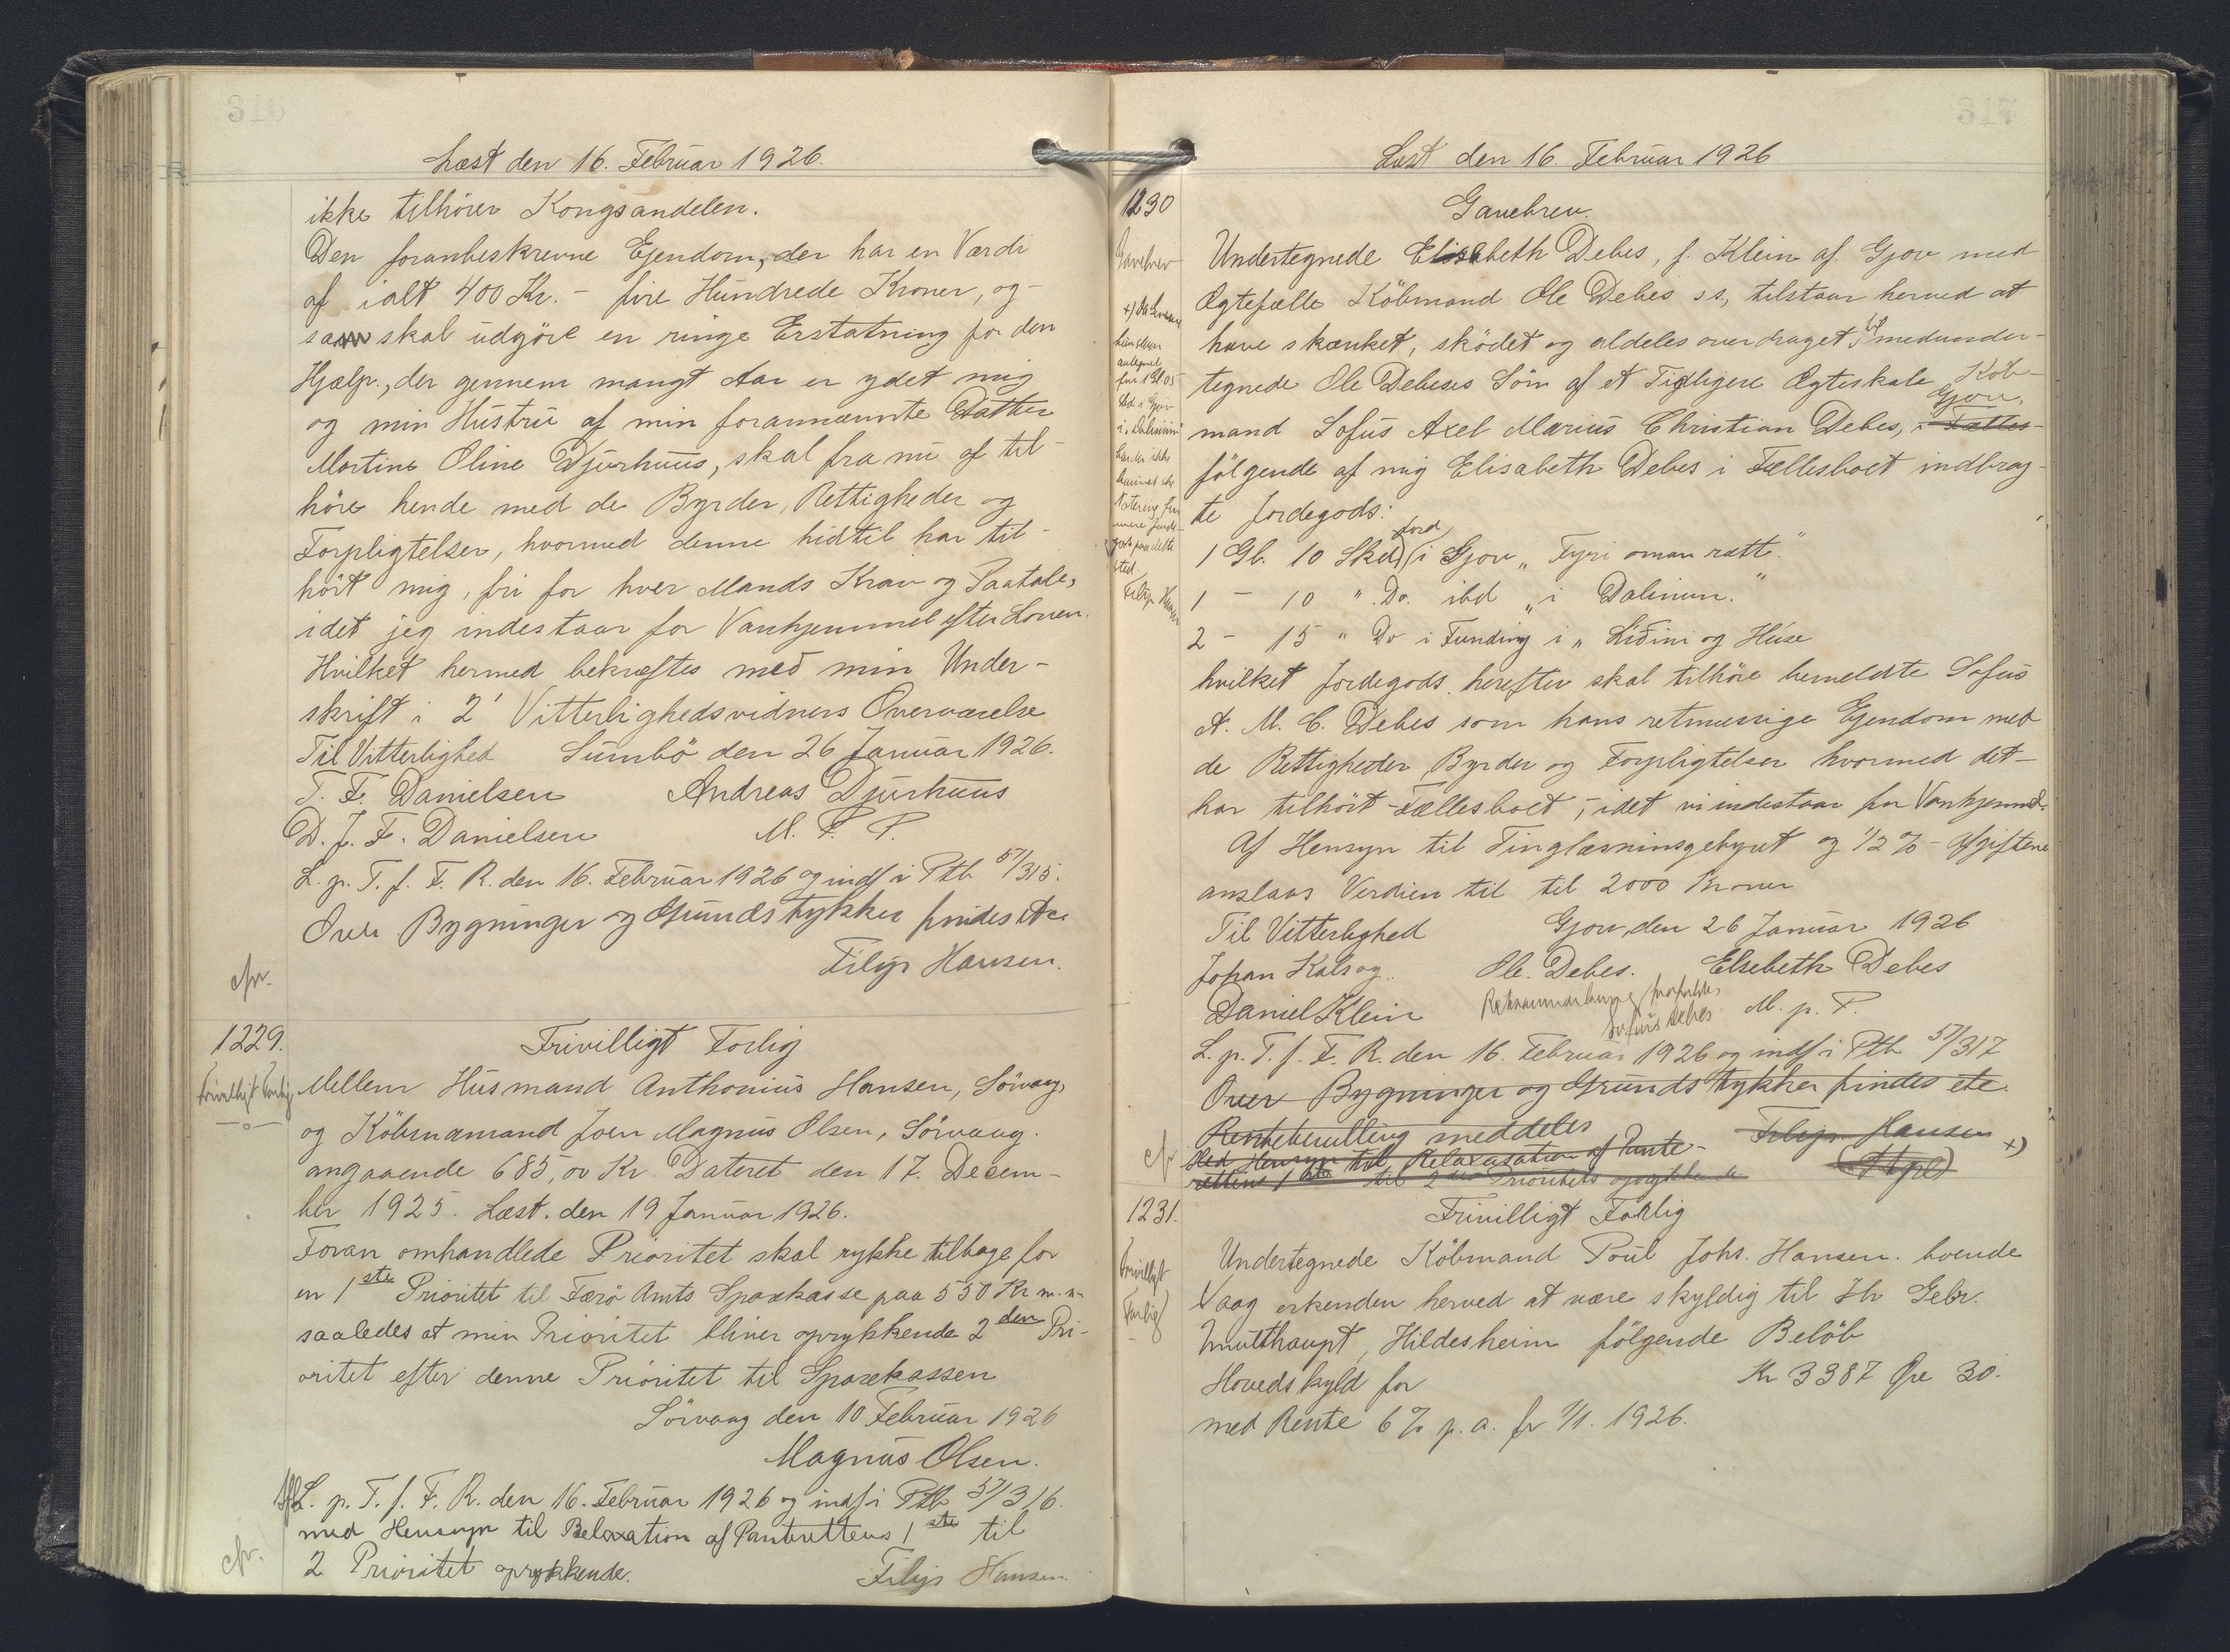 316
Læst den 16. Februar 1926.
ikke tilhörer Kongsandelen.
Den foranbeskrevne Ejendom, der har en Værdi
af ialt 400 Kr. - fire Hundrede Kroner, og-
som skal udgöre en ringe Erstatning for den
Hjælp, der gennem mangt Aar er ydet mig
og min Hustru af min forannævnte Datter
Martine Oline Djurhuus, skal fra nu af til-
höre hende med de Byrder, Rettigheder og
Forpligtelser, hvormed denne hidtil har til-
hört mig, fri for hver Mands Krav og Paatale,
idet jeg indestaar for Vanhjemmel efter Loven.
Hvilket hermed bekræftes med min Under-
skrift i 2' Vitterlighedsvidners Overværelse
Til Vitterlighed Sumbö den 26 Januar 1926.
T. F. Danielsen Andreas Djurhuus
D. J. F. Danielsen M. F. P.
L. p. T. f. F. R. den 16. Februar 1926 og indf i Ptb 57/315.
Over Bygninger og Grundstykker findes etc
Filip Hansen.
cfr.
1229. Frivilligt Forlig
Frivilligt Forlig
Mellem Husmand Anthonius Hansen, Sörvaag,
og Köbmamand Joen Magnus Olsen, Sörvaag.
angaaende 685,00 Kr. Dateret den 17. Decem-
ber 1925. Læst. den 19 Januar 1926.
Foran omhandlede Prioritet skal rykke tilbage for
en 1ste Prioritet til Færö Amts Sparekasse paa 550 Kr m.m
saaledes at min Prioritet bliver oprykkende 2den Pri-
oritet efter denne Prioritet til Sparekassen
Sörvaag den 10 Februar 1926
Magnus Olsen.
L. p. T. f. F. R. den 16. Februar 1926 og indf i Ptb 57/316.
med Hensyn til Relaxation af Panterettens 1ste til
2 Prioritet oprykkende.
Filip Hansen.
cfr.
317
Læst den 16. Februar 1926
1230 Gavebrev.
Gavebrev
Undertegnede Elisabeth Debes, f. Klein af Gjov med
Ægtefælle Köbmand Ole Debes ss, tilstaar herved at
have skænket, sködet og aldeles overdraget til medunder-
tegnede Ole Debeses Sön af et Tidligere Ægteskab Köb-
mand Sofus Axel Marius Christian Debes, Gjov, i Fælles-
fölgende af mig Elisabeth Debes i Fællesboet indbrag-
te Jordegods:
1 Gl. 10 Skd Jord i Gjov "Fyri oman rætt."
1 - 10 " Do. ibd "i Dalinum."
2 - 15 " Do i Funding i "Liðini og Húse
hvilket Jordegods herefter skal tilhöre bemeldte Sofus
A. M. C. Debes som hans retmæssige Ejendom med
de Rettigheder Byrder og Forpligtelser hvormed det-
har tilhört Fællesboet, idet vi indestaar for Vanhjemmel.
Af Hensyn til Tinglæsninsgebyret og 1/2 % - Afgiften
anslaas Verdien til til 2000 Kroner
Til Vitterlighed Gjov, den 26 Januar 1926
Johan Kalsog. Ole Debes. Elsebeth Debes
Daniel Klein Sofus Debes M. p. P.
L. p. T. f. F. R. den 16. Februar 1926 og indf i Ptb 57/317
Over Bygninger og Grundstykker findes etc.
meddeles Filip Hansen
Med Hensyn til Relaxasation af Pante- +)
rettens 1ste til 2den Prioritets oprykkende
cfr
i "Dalinum"
sted
Filip Hansen
1231. Frivilligt Forlig
Frivilligt
Forlig
Undertegnede Köbmand Poul Johs. Hansen. boende
Vaag erkender herved at være skyldig til Hr Gebr.
Mutthaupt, Hildesheim fölgende Belöb
Hovedskyld for Kr 3387 Øre 30.
med Rente 6 % p. a. fr 1/1. 1926.